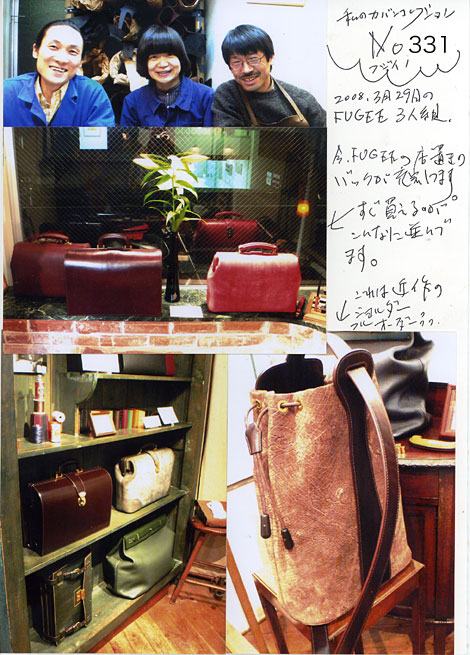 私のカバンコレクション
No 331
フジイ!
2008.3月29日の
FUGEE 3人組.
今、FUGEEの店頭の
バックが充実してます。
すぐ買えるのが
こんなに並んで
ます。
これは近作の
ショルダー
フルオーダーバッグ.